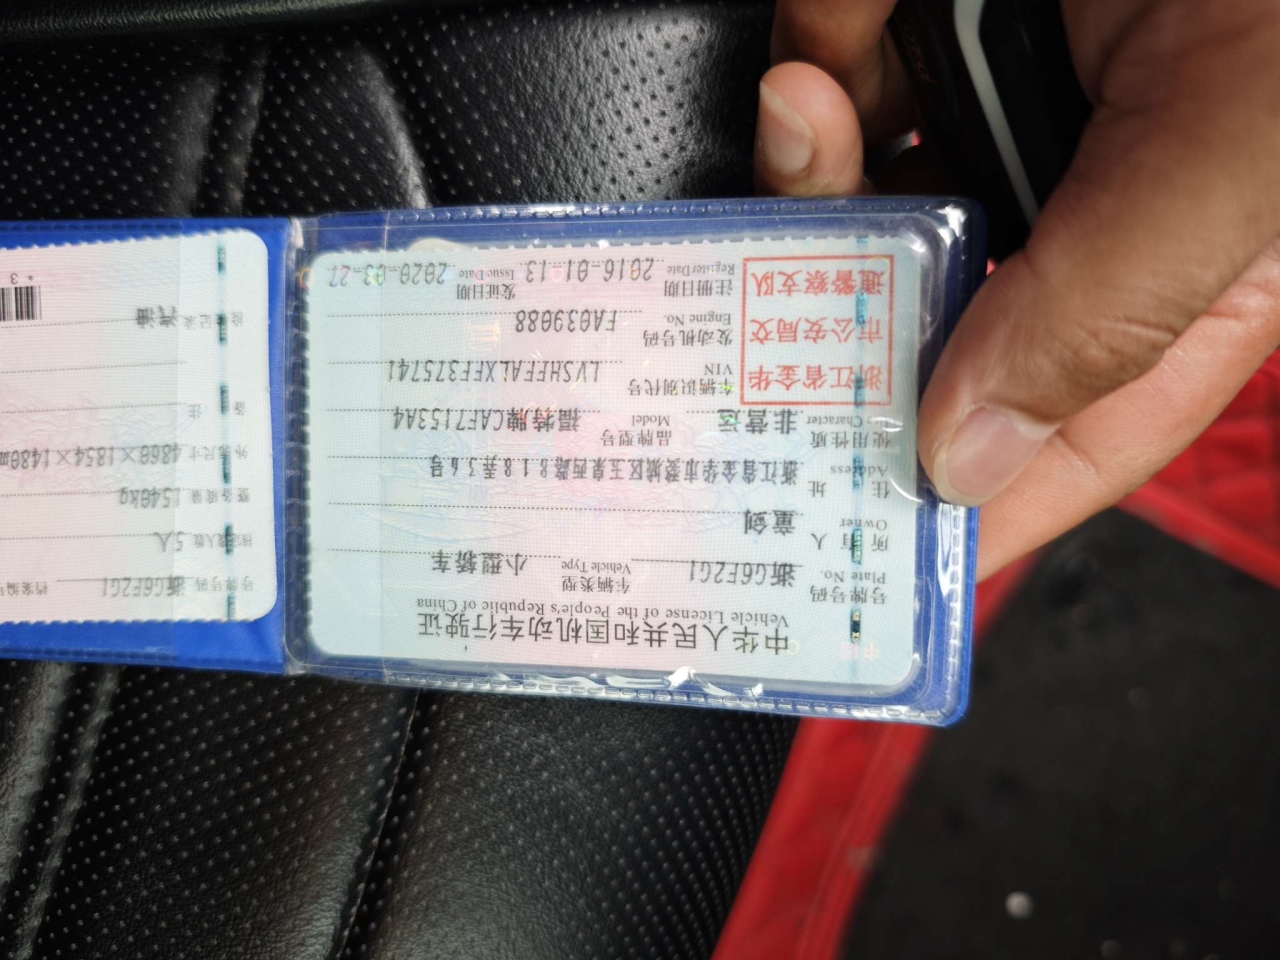 中华人民共和国机动车行驶证
Vehicle License of the People's Republic of China
号牌号码 浙G6F2G1 车辆类型 小型轿车
Plate No. Vehicle Type
所有人 童剑
Owner
住址 浙江省金华市婺城区玉泉西路818弄36号
Address
使用性质 非营运 品牌型号 福特牌CAF7153A4
Use Character Model
浙江省金华
市公安局交
通警察支队
车辆识别代号 LVSHFFALXFF375741
VIN
发动机号码 FA039088
Engine No.
注册日期 2016-01-13 发证日期 2020-03-27
Register Date Issue Date
号牌号码 浙G6F2G1 档案编号
核定载人数 5人
整备质量 1540kg
外廓尺寸 4860×1854×1480m
备注
检验记录 汽油
*3